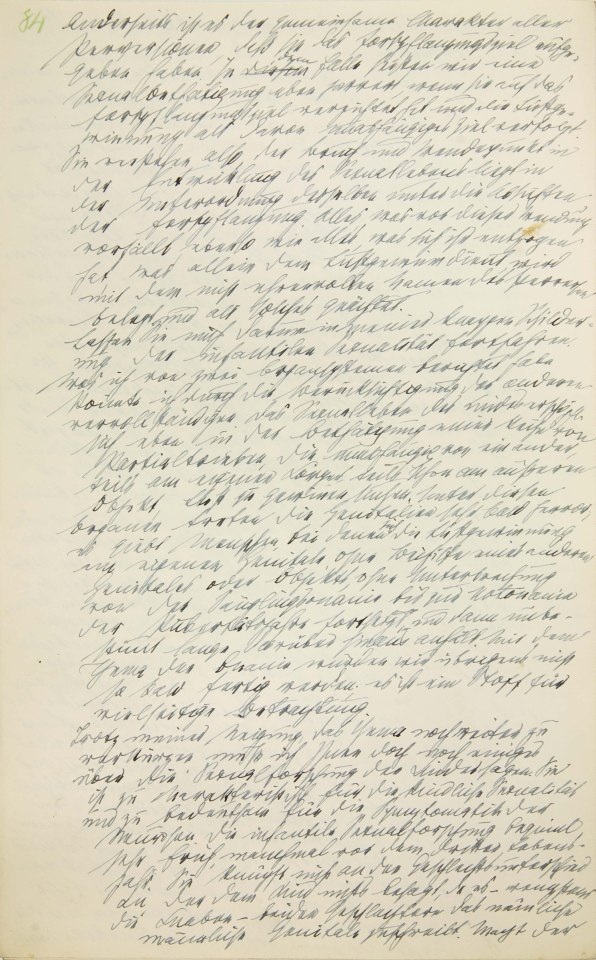 84
Anderseits ist es der gemeinsame Charakter aller
Perversionen, daß sie das Fortpflanzungsziel aufge-
geben haben. In dem Falle heißen wir eine
Sexualbethätigung eben pervers, wenn sie auf das
Fortpflanzungsziel verzichtet hat und die Lustge-
winnung als davon unabhängiges Ziel verfolgt.
Sie verstehen also, der Bruch und Wendepunkt in
der Entwicklung des Sexuallebens liegt in
der Unterordnung desselben unter die Absichten
der Fortpflanzung. Alles was vor dieser Wendung
vorfällt, ebenso wie alles, was sich ihr entzogen
hat, was allein dem Lustgewinn dient, wird
mit dem nicht ehrenvollen Namen des Perversen
belegt und als solches geächtet.
Lassen Sie mich darum in meiner knappen Schilder-
ung der infantilen Sexualität fortfahren.
Was ich von zwei Organsystemen berichtet habe
könnte ich durch die Berücksichtigung der anderen
vervollständigen. Das Sexualleben des Kindes erschöpft
sich eben in der Bethätigung einer Reihe von
Partialtrieben, die unabhängig von einander
teils am eigenen Körper, teils schon am äußeren
Objekt Lust zu gewinnen suchen. Unter diesen
Organen treten die Genitalien sehr bald hervor,
es giebt Menschen, bei denen sich die Lustgewinnung
am eigenen Genitale, ohne Beihilfe eines anderen
Genitales oder Objekts, ohne Unterbrechung
von der Säuglingsonanie bis zur Notonanie
der Pubertätsjahre fortsetzt und dann unbe-
stimmt lange darüber hinaus anhält. Mit dem
Thema der Onanie würden wir übrigens nicht
so bald fertig werden; es ist ein Stoff für
vielseitige Betrachtung.
Trotz meiner Neigung, das Thema noch weiter zu
verkürzen muß ich Ihnen doch noch einiges
über die Sexualforschung der Kinder sagen. Sie
ist zu charakteristisch für die kindliche Sexualität
und zu bedeutsam für die Symptomatik der
Neurosen. Die infantile Sexualforschung beginnt
sehr früh, manchmal vor dem dritten Lebens-
jahr. Sie knüpft nicht an den Geschlechtsunterschied
an, der dem Kind nichts besagt, da es – wenigstens
die Knaben – beiden Geschlechtern das nämliche
männliche Genitale zuschreibt. Macht der